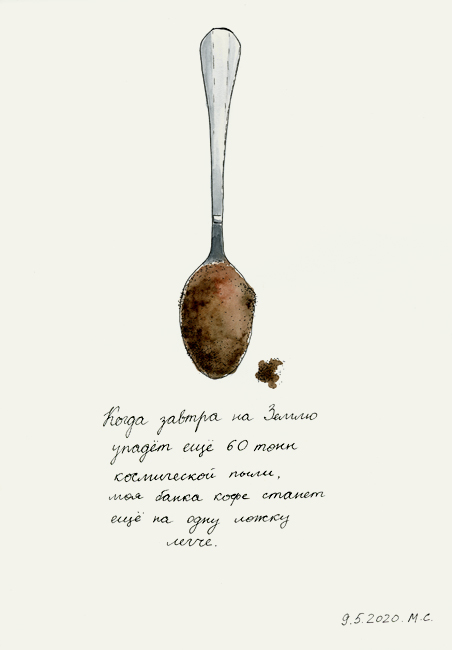 Когда завтра на Землю
упадёт ещё 60 тонн
космической пыли,
моя банка кофе станет
ещё на одну ложку
легче.
9.5.2020. М.С.